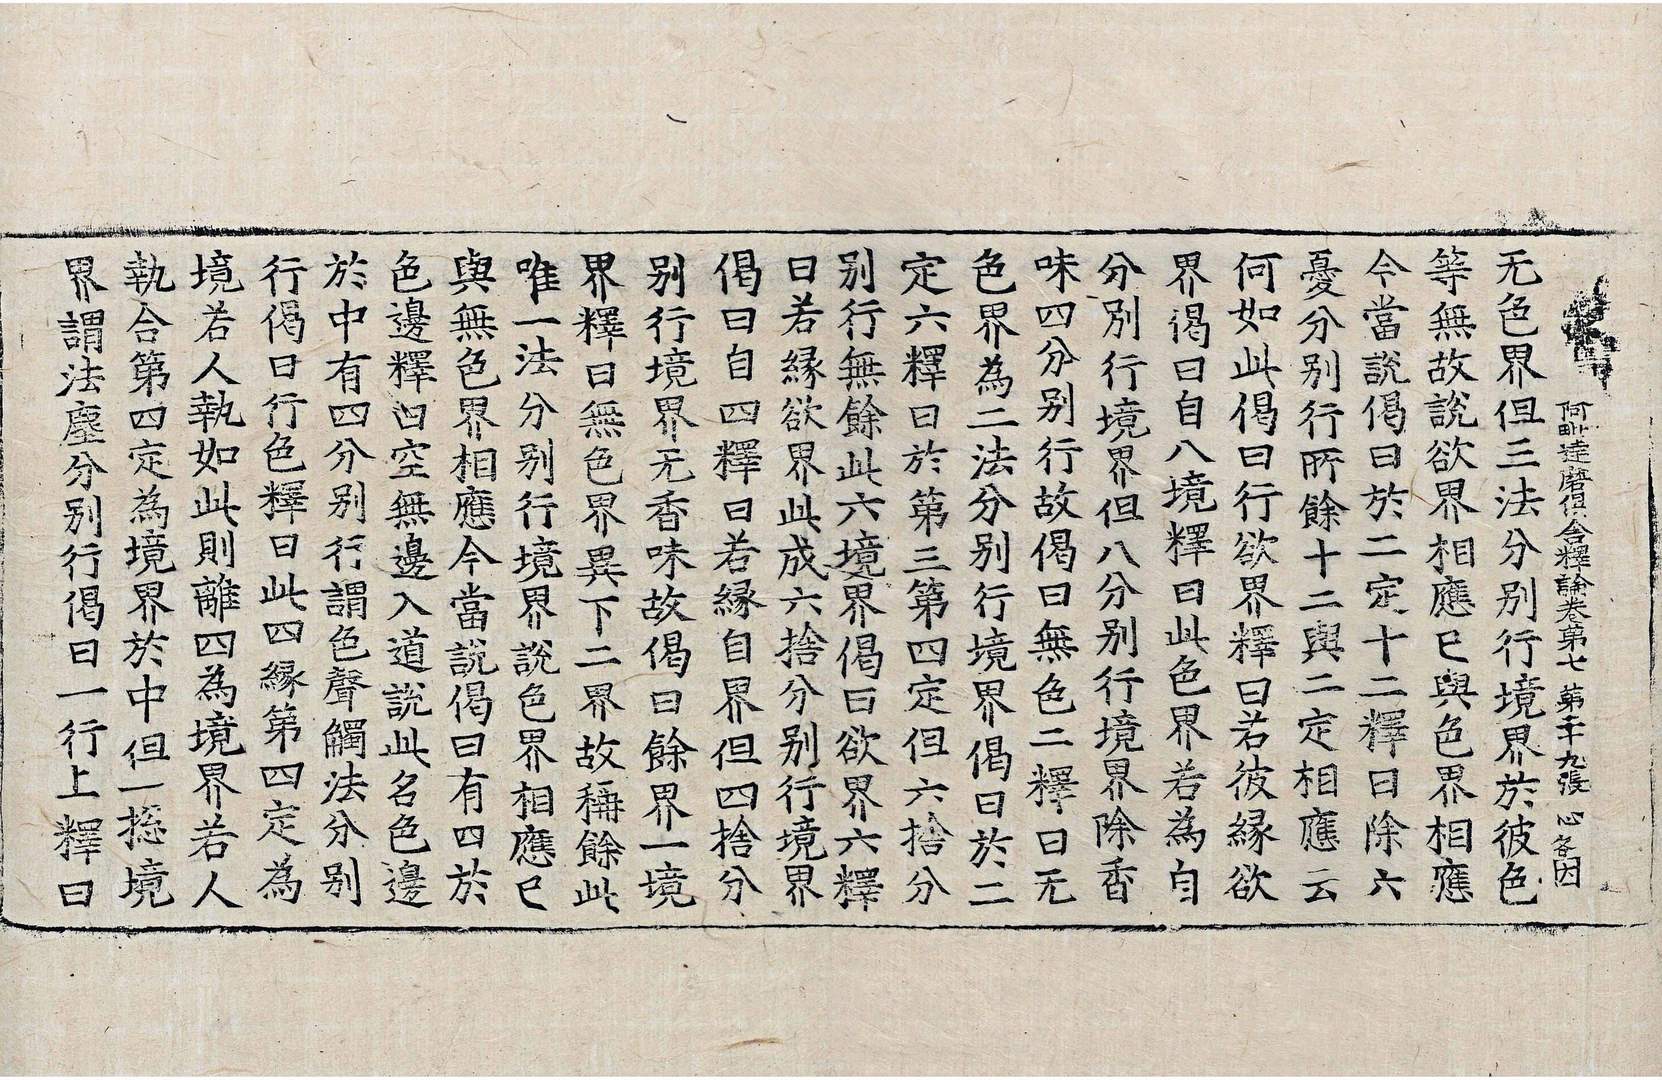 阿毗達磨俱舍釋論卷第七 第二十九張 心 客因
无色界但三法分別行境界於彼色
等無故說欲界相應已與色界相應
今當說偈曰於二定十二釋曰除六
憂分別行所餘十二與二定相應云
何如此偈曰行欲界釋曰若彼緣欲
界偈曰自八境釋曰此色界若為自
分別行境界但八分別行境界除香
味四分別行故偈曰無色二釋曰无
色界為二法分別行境界偈曰於二
定六釋曰於第三第四定但六捨分
別行無餘此六境界偈曰欲界六釋
曰若緣欲界此成六捨分別行境界
偈曰自四釋曰若緣自界但四捨分
別行境界无香味故偈曰餘界一境
界釋曰無色界異下二界故稱餘此
唯一法分別行境界說色界相應已
與無色界相應今當說偈曰有四於
色邊釋曰空無邊入道說此名色邊
於中有四分別行謂色聲觸法分別
行偈曰行色釋曰此四緣第四定為
境若人執如此則離四為境界若人
執合第四定為境界於中但一揔境
界謂法塵分別行偈曰一行上釋曰